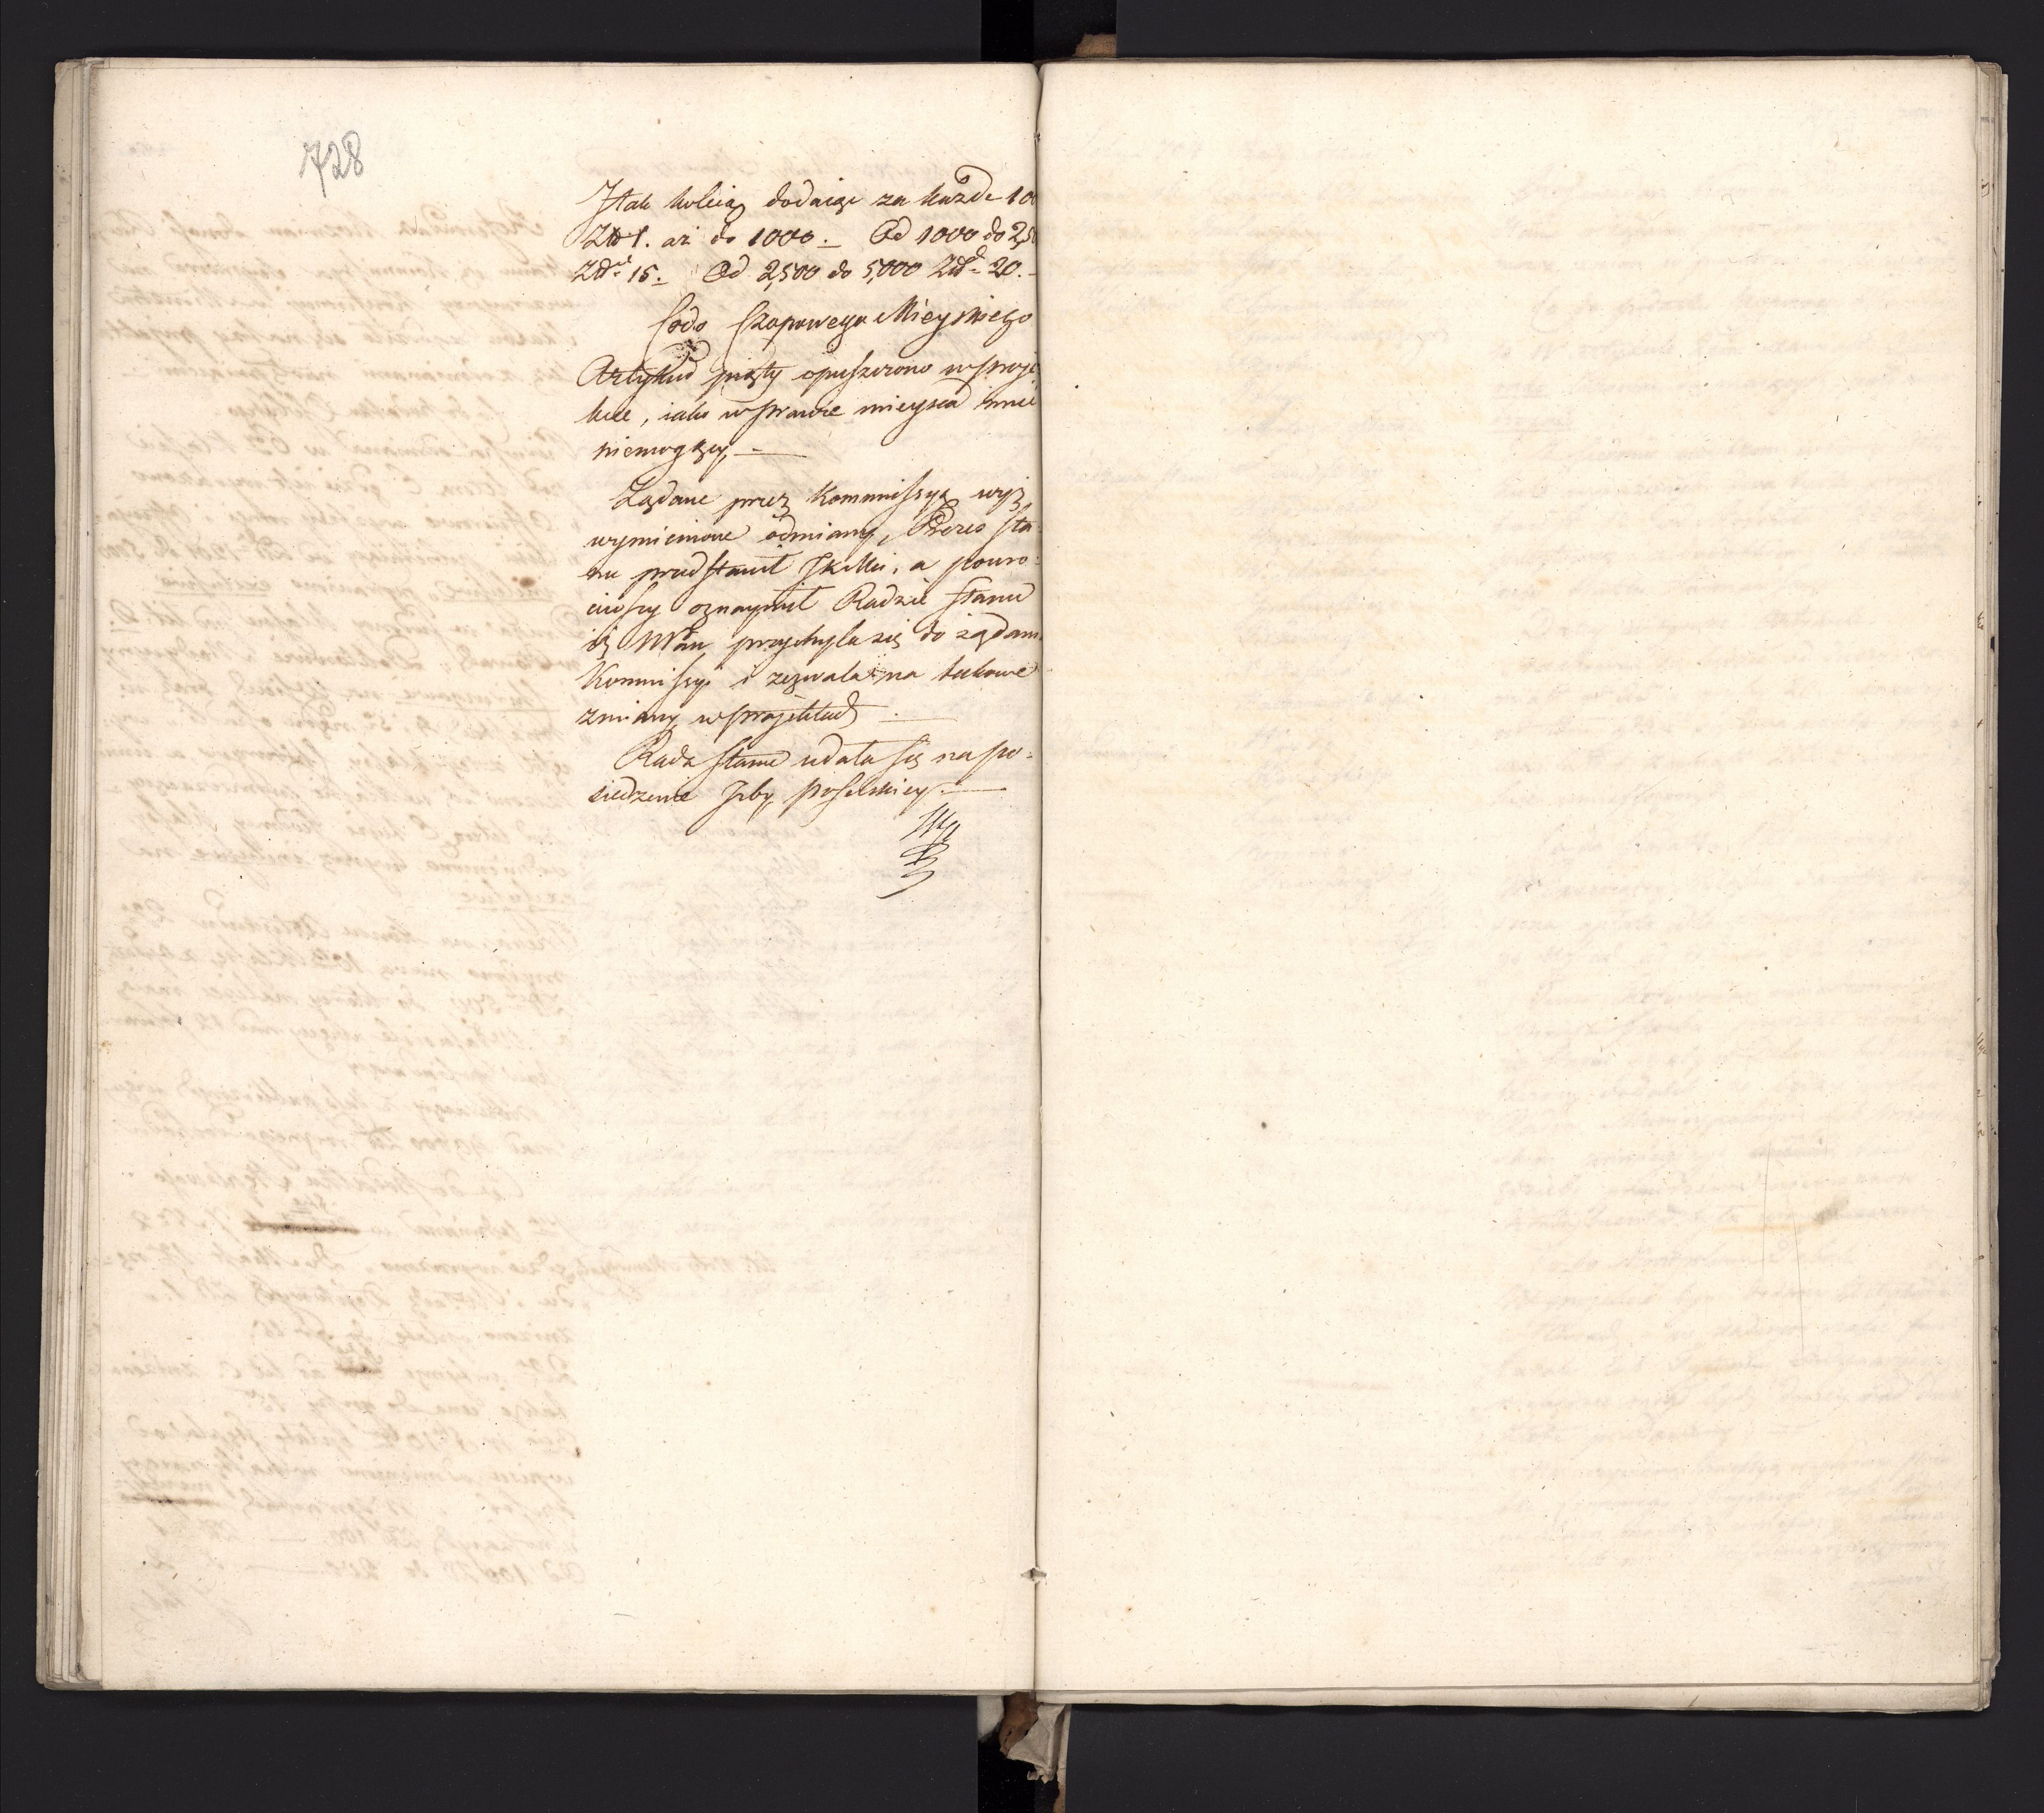 728
I tak koleią dodaiąc za każde 100
Złł 1. aż do 1000. — Od 1000 do 2,50
Złł 15. Od 2,500 do 5,000 Złł 20. —
Codo Czopowego Mieyskiego
Artykuł piąty opuszczono w proje
kcie, iako w prawie mieysca mieć
niemogący. —
Żądane przez Kommissyą wyż
wymienione odmiany, Prezes Sta-
nu przedstawił JKMci, a powro-
ciwszy oznaymił Radzie Stanu
iż NPan przychyla się do żądani
Kommissyi i zezwala na takowe
zmiany w projektach. —
Rada Stanu udała się na po-
siedzenie Izby Poselskiey. —